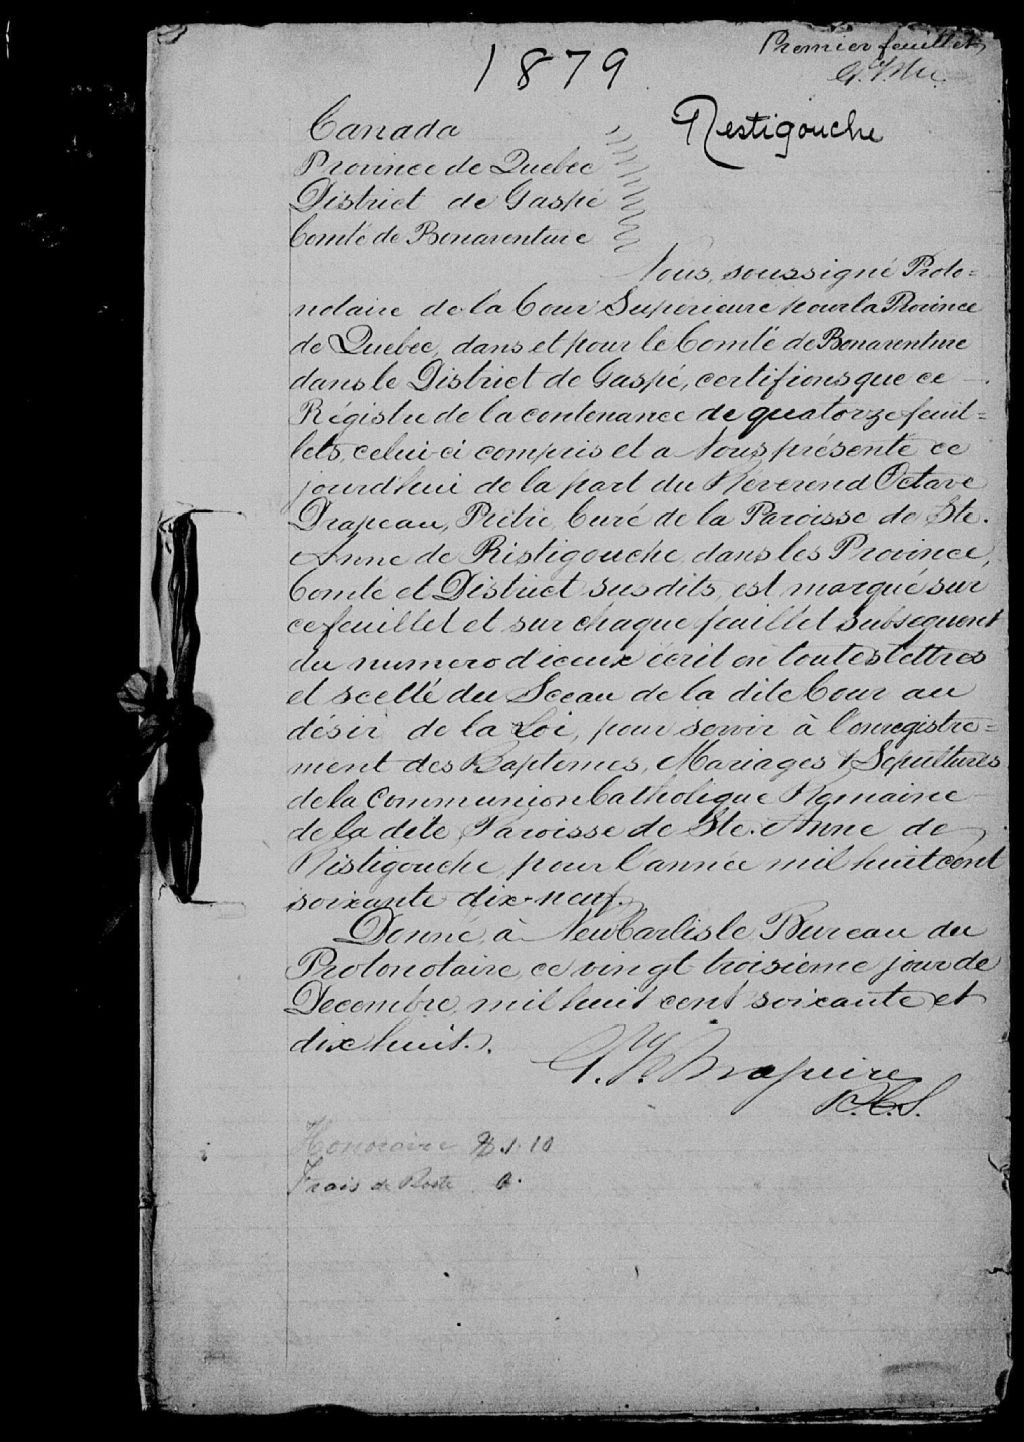 Premier feuillet
1879
Restigouche
Canada
Province de Quebec
District de Gaspé
Comté de Bonaventure
Nous, soussigné Proto=
notaire de la Cour Superieure pour la Province
de Quebec, dans et pour le Comté de Bonaventure
dans le District de Gaspé, certifions que ce
Régistre de la contenance de quatorze feuil=
lets, celui-ci compris et a Nous présenté ce
jourdhui de la part du Réverend Octave
Drapeau, Prêtre, Curé de la Paroisse de Ste.
Anne de Ristigouche, dans les Province,
Comté et District susdits, est marqué sur
ce feuillet et sur chaque feuillet subsequent
du numero d'iceux écrit en toutes lettres
et scellé du Sceau de la dite Cour au
désir de la Loi, pour servir à l'enregistre=
ment des Baptemes, Mariages & Sepultures
de la Communion Catholique Romaine
de la dite Paroisse de Ste. Anne de
Ristigouche pour l'année mil huit cent
soixante dix-neuf.
Donné à New Carlisle, Bureau du
Protonotaire, ce vingt troisieme jour de
Decembre, mil huit cent soixante et
dix huit.
P.C.S.
Honoraire $1.10
Frais de Poste 0.